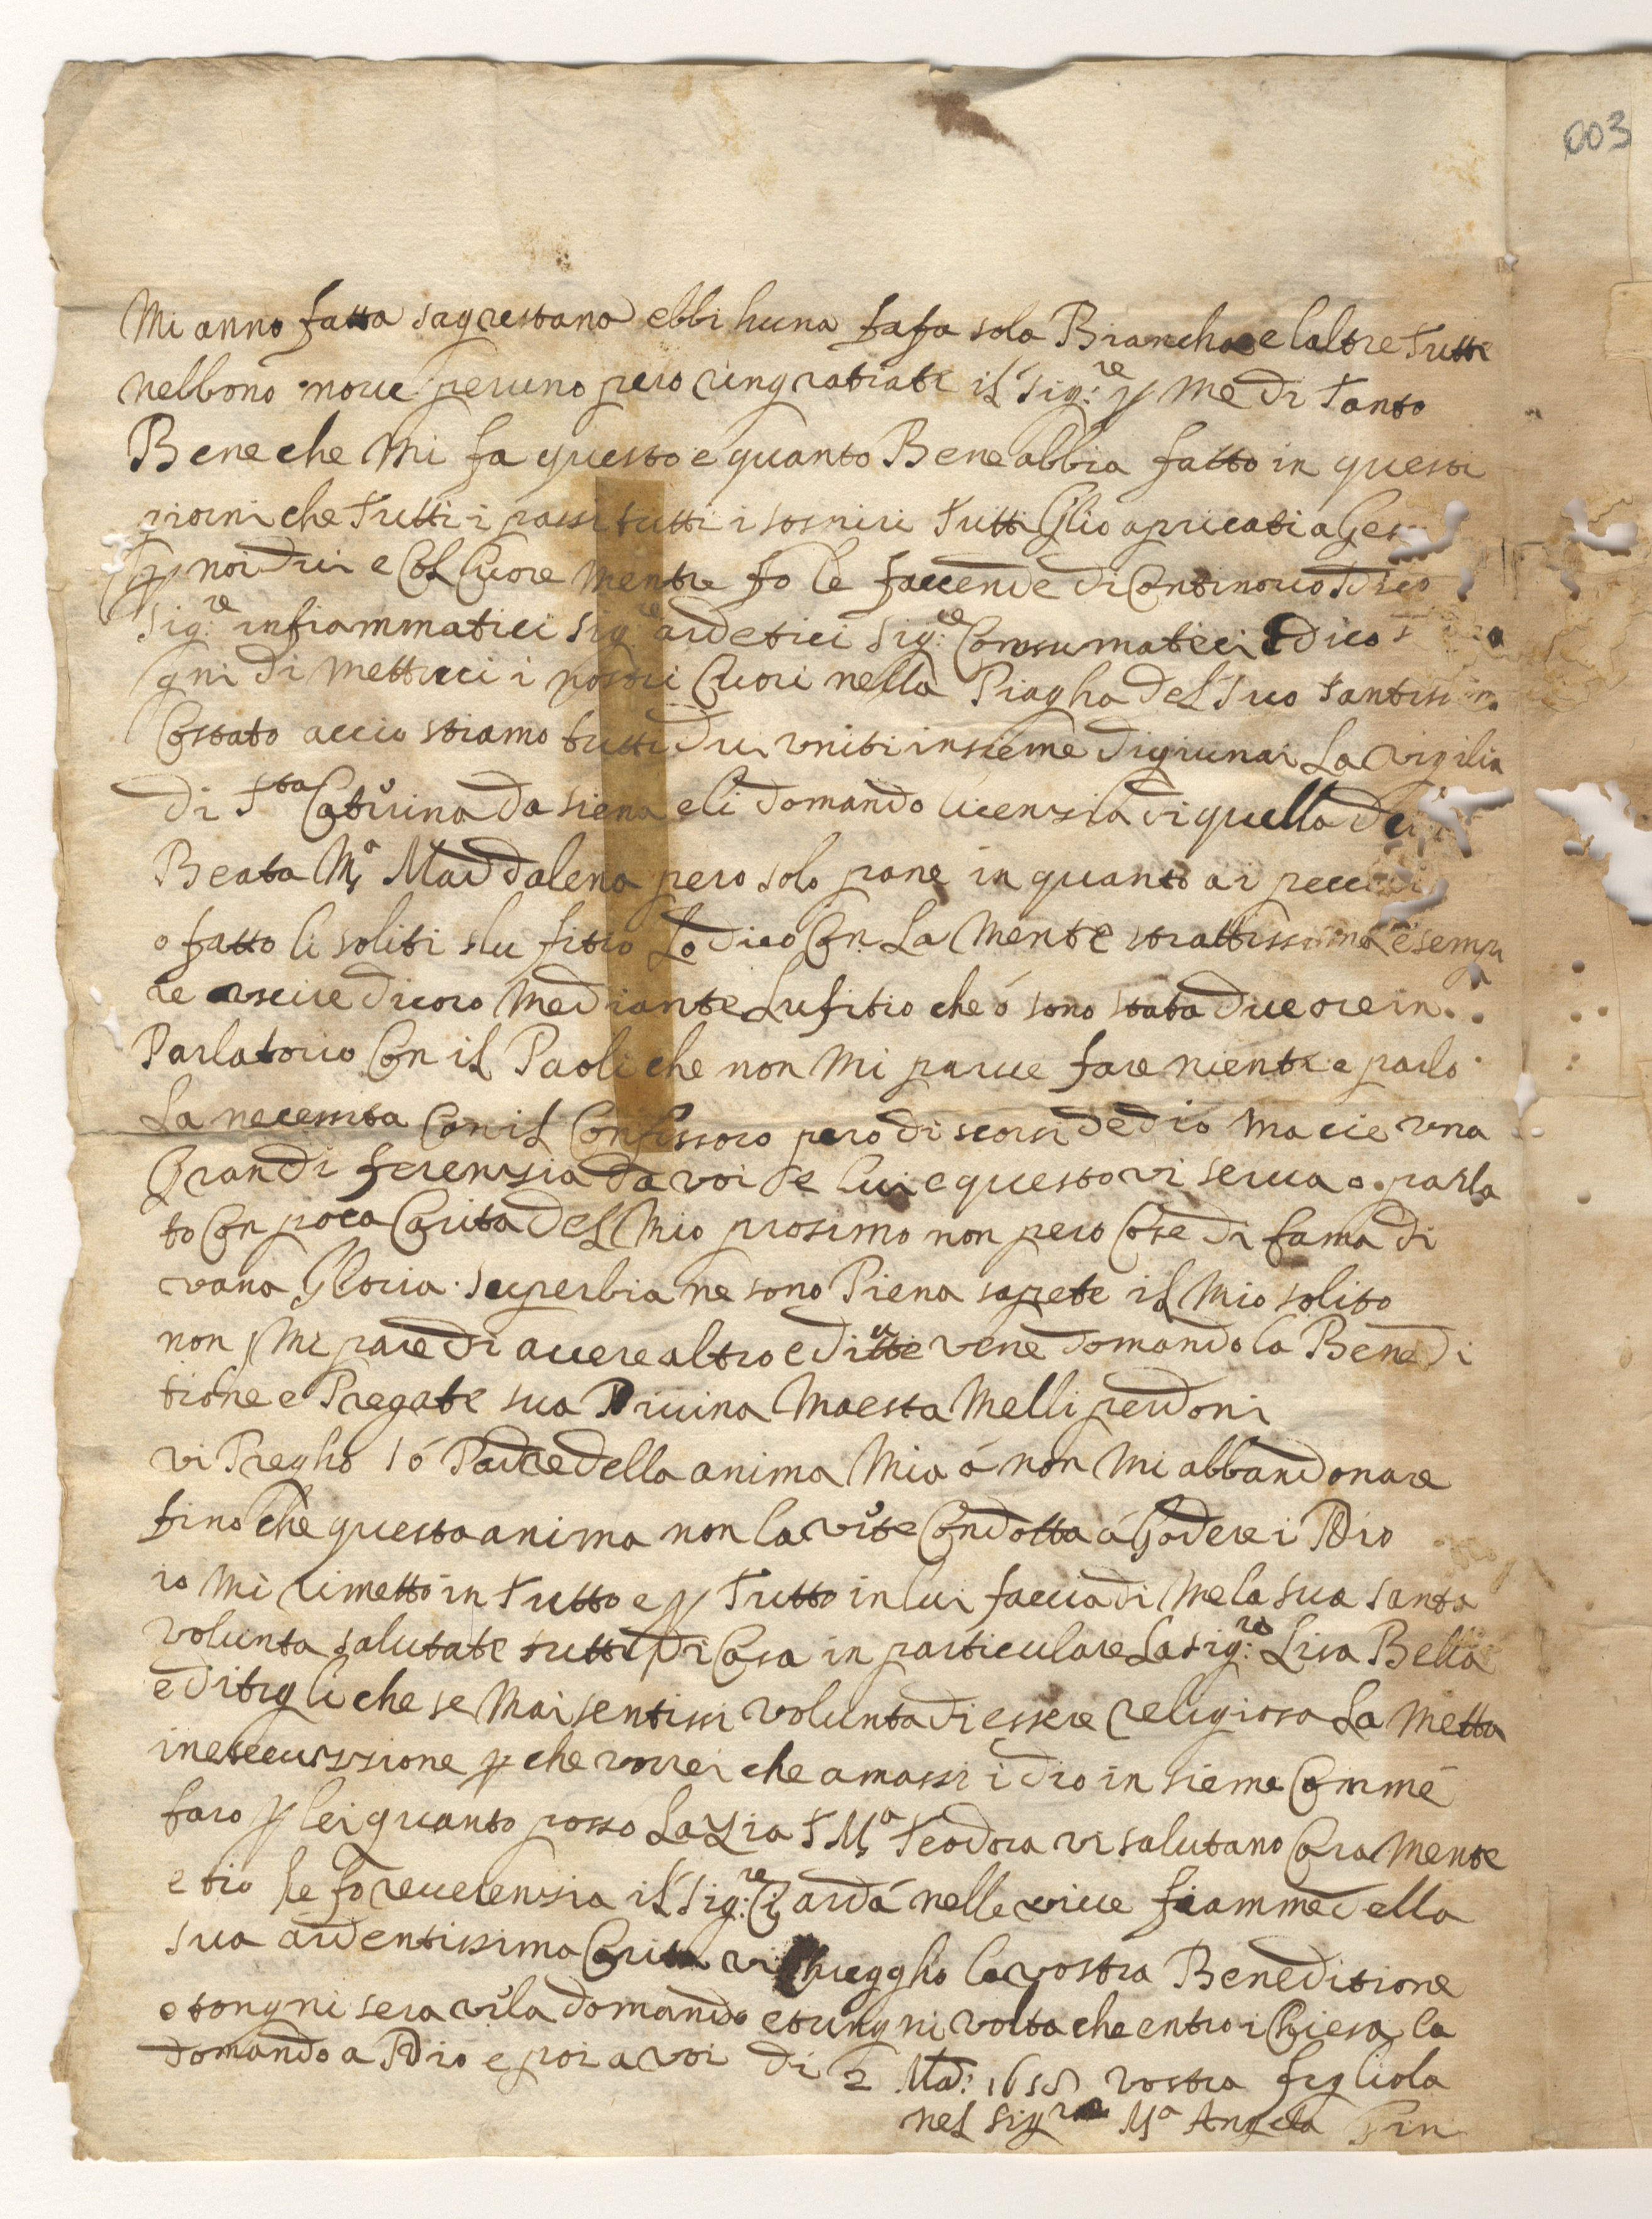 003
Mi anno fatta sagrestana ebbi huna fafa sola Biancha e laltre tutte
nebbono noue peruno pero ringratiate il Sig:re p me di tanto
Bene che Mi fa questo e quanto Bene abbia fatto in questi
giorni che tutti i passi tutti i sospiri tutti Glio apricati a Ges
p noi dui e Col Cuore mentre fo le faccende di Continouo
Sig:re infiammatici Sig:re ardetici Sig:re Consumateci e dico
gni di metterci i nostri Cuori nella Piagha del suo santissim
Costato accio stiamo tutti dui uniti insieme digiunai La vigilia
di Sta Caterina da Siena e li domando licenzia di quella de
Beata Ma Maddalena pero solo pane in quanto ai pecca
o fatto li soliti slu fitio Lo dico Con La Mente strattissima e semp
re uscire di coro Mediante Lufitio che ó sono stata due ore in
Parlatorio Con il Paoli che non Mi parue fare niente e parlo
La necessita Con il Confessoro pero discorsi de dio ma cie una
Gran diferenzia da voi e lui e questo vi serua o parla
to Con poca Carita del Mio prosimo non pero Cose di fama di
vana Gloria superbia ne sono Piena sapete il Mio solito
non Mi pare di auere altro e di tutte vene domando la Benedi
tione e Pregate sua Diuina Maesta Melli perdoni
vi Pregho ió Padre della anima Mia á non Mi abbandonare
fino che questa anima non lavete Condotta á Godere i Ddio
io Mi rimetto in tutto e p tutto in lui faccia di Me la sua santa
volunta salutate tutti di Casa in particulare La Sig:ra Lisa Bella
e ditegli che se Mai sentissi volunta di essere religiosa La metta
in esecussione p che vorrei che amassi idio in sieme Con mé
faro p lei quanto posso La Zia S Ma Teodora vi salutano Cara Mente
e tio le fo reuerenzia il Sig:re Ci ardá nelle viue fiamme della
sua ardentissima Carita vi Chieggho la vostra Beneditione
e tongni sera vela domando e tungni volta che entro i Chiesa la
domando a Ddio e poi a voi di 2 Mad: vostra figliola
nel Sigre Ma Angela